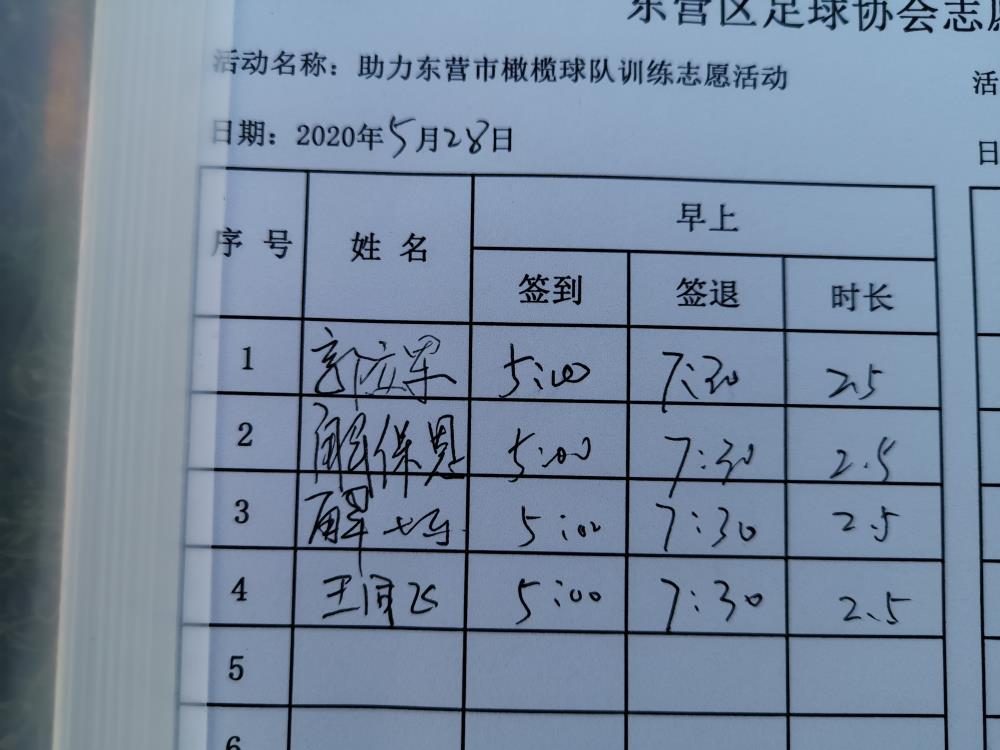 东营区足球协会志
活动名称：助力东营市橄榄球队训练志愿活动
活
日期：2020年5月28日
日
序号 姓名 早上
签到 签退 时长
1 5:00 7:30 2.5
2 解保恩 5:00 7:30 2.5
3 解 5:00 7:30 2.5
4 王国飞 5:00 7:30 2.5
5
6